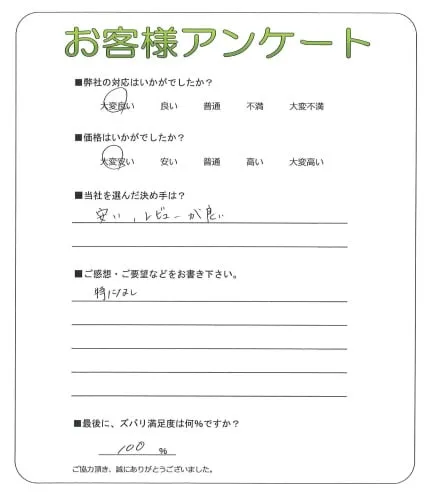 お客様アンケート
■弊社の対応はいかがでしたか？
大変良い 良い 普通 不満 大変不満
■価格はいかがでしたか？
大変安い 安い 普通 高い 大変高い
■当社を選んだ決め手は？
安い,レビューが良い
■ご感想・ご要望などをお書き下さい。
特になし
■最後に、ズバリ満足度は何％ですか？
100 %
ご協力頂き、誠にありがとうございました。